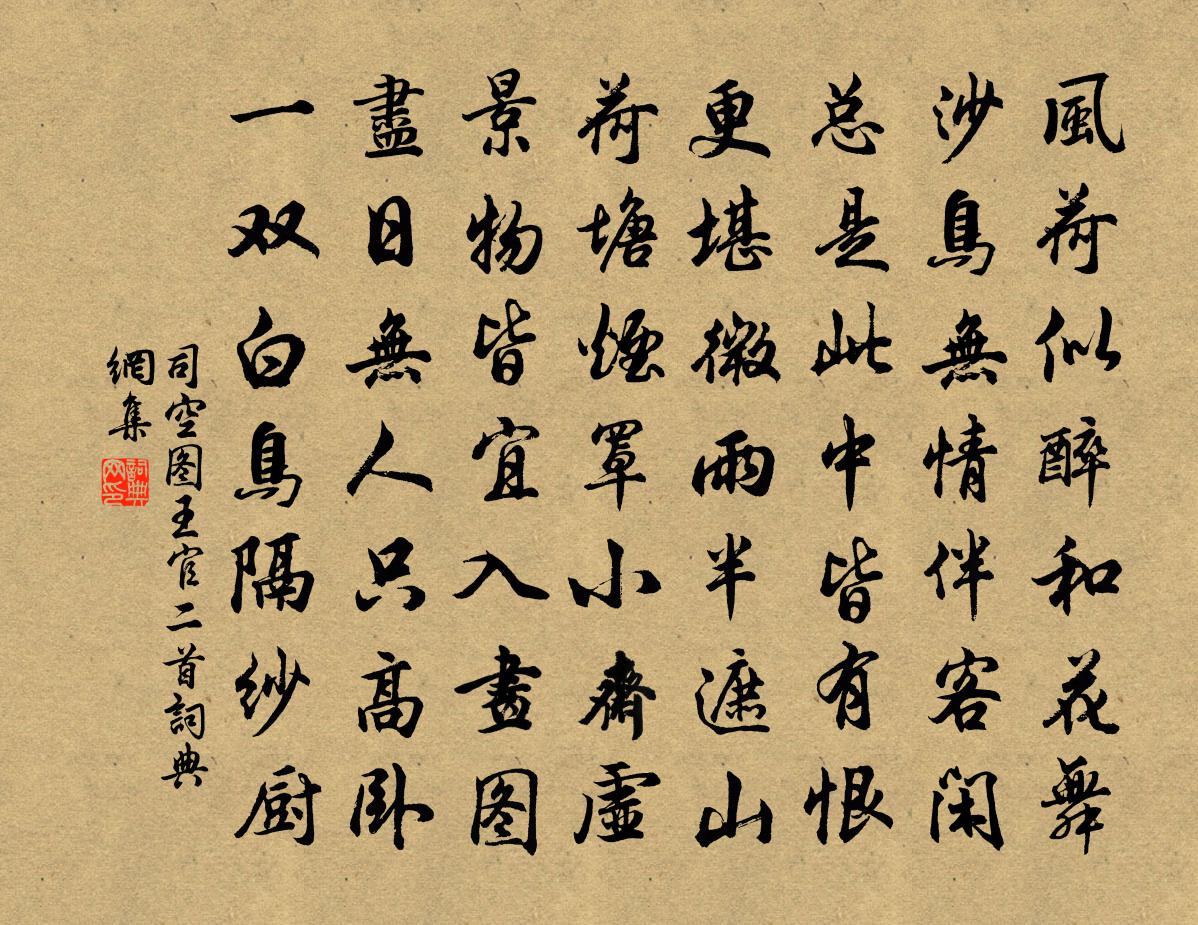 風荷似醉和花舞
沙鳥無情伴客闲
总是此中皆有恨
更堪微雨半遮山
荷塘煙罩小齋虛
景物皆宜入畫图
盡日無人只高卧
一双白鳥隔纱厨
司空图王官二首詞典
網集
詞典
网印